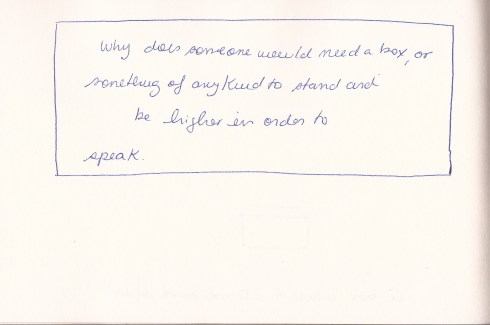 Why does someone would need a box, or
something of any kind to stand and
be higher in order to
speak.